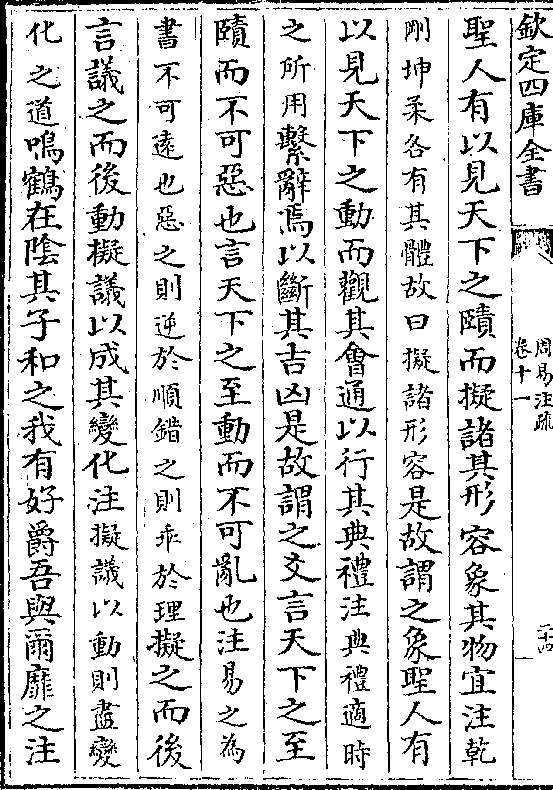 欽定四庫全書
周易注疏
卷十一
二十四
聖人有以見天下之賾而擬諸其形容象其物宜注乾
剛坤柔各有其體故曰擬諸形容是故謂之象聖人有
以見天下之動而觀其會通以行其典禮注典禮適時
之所用繫辭焉以斷其吉凶是故謂之爻言天下之至
賾而不可惡也言天下之至動而不可亂也注易之為
書不可遠也惡之則逆於順錯之則乖於理擬之而後
言議之而後動擬議以成其變化注擬議以動則盡變
化之道鳴鶴在陰其子和之我有好爵吾與爾靡之注